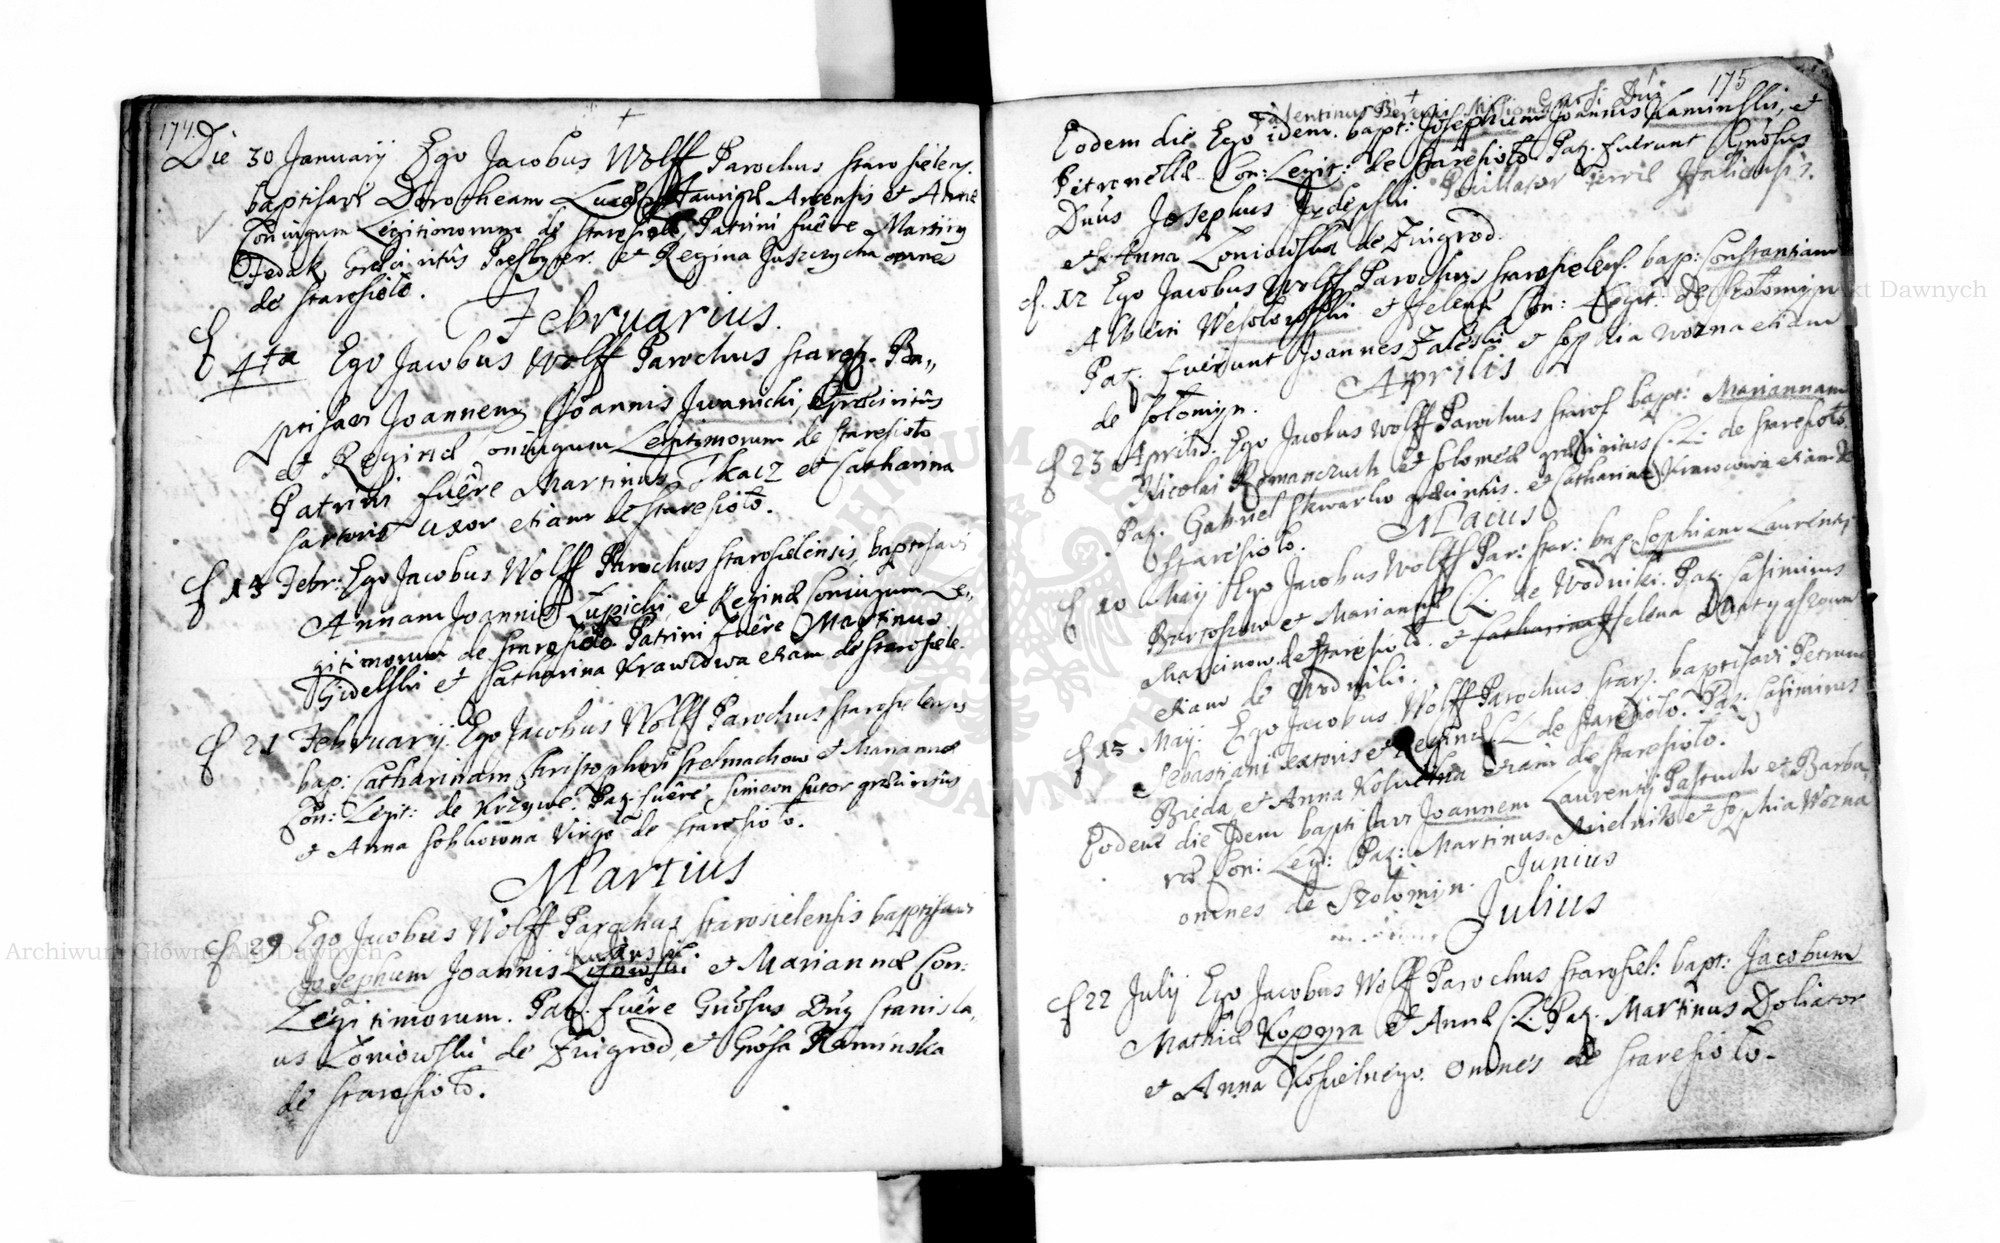 174.
Die 30 January Ego Jacobus Wolff Parochus starosielens.
baptisavi Dorotheam Lucæ Aurigæ Arcensis et Annæ
Coniugum Legitimorum de Staresioło, Patrini fuêre Martiny
Fedak Græci ritûs Presbyter. et Regina Juszczycha omnes
de staresioło.
Februarius.
4ta Ego Jacobus Wolff Parochus staros. Ba„
ptisavi Joannem Joannis Jwanicki, Græci ritûs
et Reginæ Coniugum Legitimorum de staresioło
Patrini fuêre Martinus Tkacz et Catharina
sartoris uxor etiam de staresioło.
13 Febr: Ego Jacobus Wolff Parochus starosielensis, baptisavi
Annam Joannis Łupicki, et Reginæ Coniugum Le„
gitimorum de staresioło Patrini fuêre Martinus
Gidelski et Catharina Krawcowa etiam de staresiele.
21 February. Ego Jacobus Wolff Parochus starosielensis
bap: Catharinam Christophori Stelmachow et Mariannæ
Con: Legit: de Krzywe. Pat: fuêrê, Simeon sutor græci ritûs
et Anna sobkowna Virgo de staresioło.
Martius
29 Ego Jacobus Wolff Parochus starosielensis baptisavi
Josephum Joannis et Mariannæ Con:
Legitimorum. Pat. fuêre Gnosus Dnus Stanisla„
us Łoniowski de Zuigrod, et Gnosa Kaminska
de staresioło.
175
Valentinus
Eodem die Ego idem. bapt: Josephum Joannis Kaminski, et
Petronellæ Con: Legit: de staresioło. Pat. fuerunt Gnosus
Dnus Josephus
et Anna Łoniowska de Zuigrod.
12 Ego Jacobus Wolff Parochus starosielens. bap: Constantiam
Alberti Wesołowski et Helenæ Con: Legit: de Szołomyn
Pat: fuerunt Joannes Zaleski et Sophia Wozna etiam
de Szołomyn.
Aprilis
23 Aprilis. Ego Jacobus Wolff Parochus staros. bapt: Mariannam
Nicolai Romanczuch et Solomeæ græci ritus C. L: de staresioło.
Pat. Gabriel Skwarko græci ritûs. et Catharina Krawcowa etiam de
staresioło.
Maius
10 Maij Ego Jacobus Wolff Par: star: bap. Sophiam Laurentij
Bartoszow et Mariannæ C. L: de Wodniki. Pat. Casimirus
Marcinow. de staresioło. et Catharina Helena Matyaszowa
etiam de Wodniki.
15 May. Ego Jacobus Wolff Parochus staros. baptisavi Petrum
Sebastiani textoris et Reginæ C. L. de staresioło. Pat: Casimirus
Bieda et Anna etiam de staresioło.
Eodem die Idem baptisavi Joannem Laurentij Pastuch et Barba„
ræ Con: Leg: Pat: Martinus Mielnik et Sophia Wozna
omnes de Szołomin.
Junius
Julius
22 July Ego Jacobus Wolff Parochus starosiel: bapt: Jacobum
Mathiæ Kopyra et Annæ C: L: Pat. Martinus Doliator
et Anna Kosielnego. omnes de staresioło.
Archiwum Główne Akt Dawnych
Archiwum Główne Akt Dawnych
ARCHIWUM GŁÓWNE AKT DAWNYCH